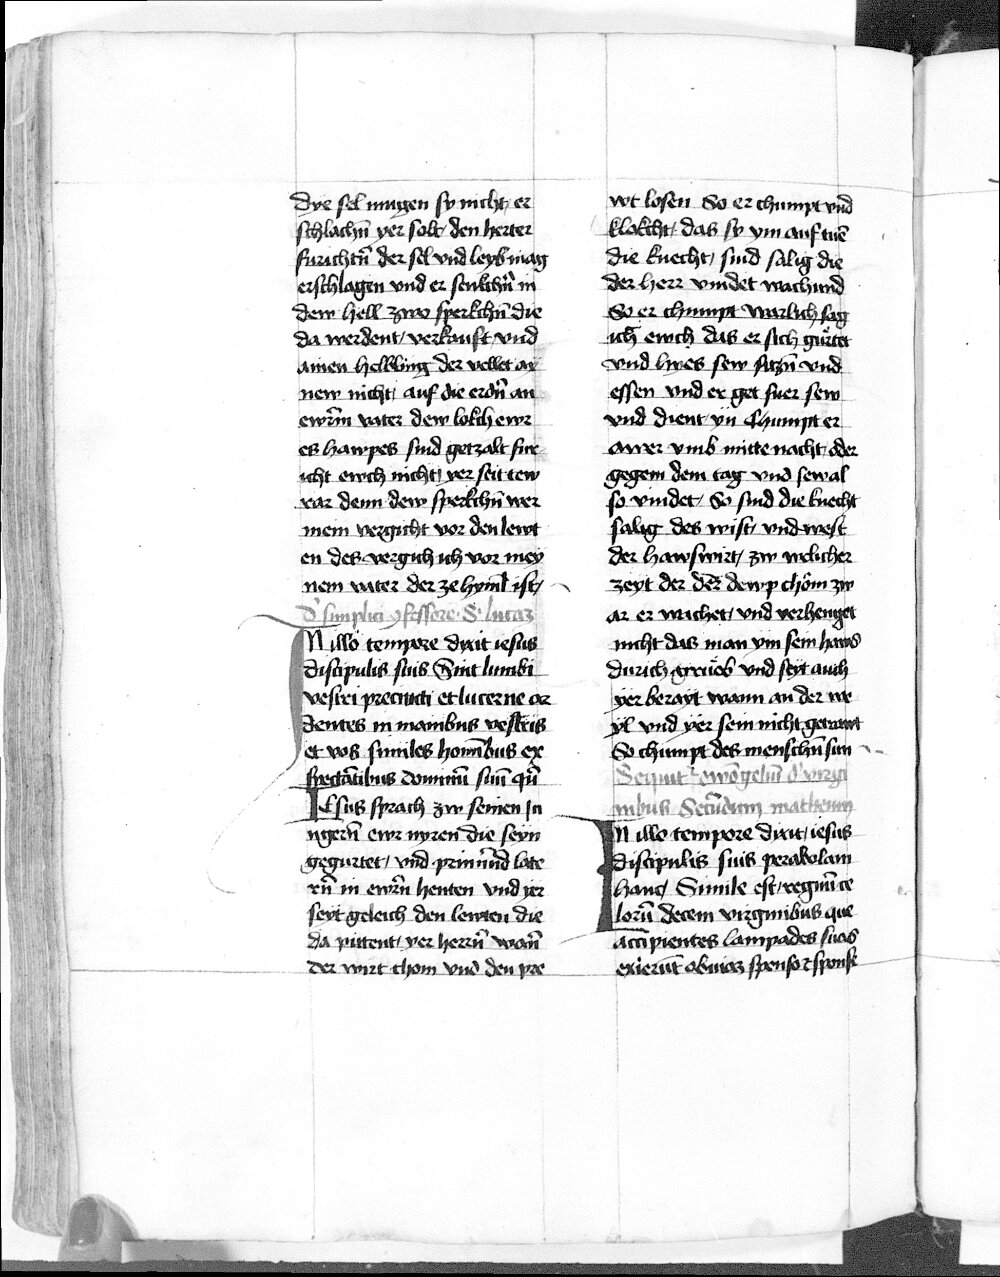 dye sel mugen sy nicht er
schlachn̄ yer solt den herter
furichtn̄ der sel vnd leyb mag
erschlagen vnd er senkchn̄ in
dew hell zwo sperkchn̄ die
da werdent verkauft vnd
ainen helbling der vellet ai
new nicht auf die erdn̄ an
ewrm̄ vater dew lokch ewr
es hawpes sind getzalt fur
icht ewch nicht yer seit tew
rar denn dew sperkchn̄ wer
mein vergicht vor den lewt
en des vergich ich vor mey
nem vater der ze hyml ist
D' simplici 9fessore S lucaz
IN illo tempore dixit iesus
discipulis suis Sint lumbi
vestri precincti et lucerne ar
dentes in manibus vestris
et vos similes homībus ex
spectātibus dominū suū qn̄
IEsus sprach zw seinen iu
ngern̄ ewr nyren die seyn
gegurtet vnd prinnūd late
rn̄ in ewrn̄ henten vnd yer
seyt geleich den lewten die
da pittent yer herrn̄ wan̄
der wirt chom vnd den pre
wt losen So er chumpt vnd
klokcht das sy ym auf tuē
die knecht sind salig die
der herr vindet wachund
So er chumpt warlich sag
ich ewch das er sich gürtet
vnd hyes sew sitzn̄ vnd
essen vnd er get fuer sew
vnd dient yn Chumpt er
awer vmb mitte nacht oder
gegem dem tag vnd sew al
so vindet So sind die knecht
salig des wist vnd west
der hawswirt zw welicher
zeyt der der dewp chöm zw
ar er wachet vnd verhenget
nicht das man ym sein haws
durich grueb vnd seyt auch
yer berayt wann an der we
yl vnd yer sein nicht getrawt
So chumpt des menschn̄ sun
Sequit' ewāgeliū d' virgi
nibus Secūdum matheum
IN illo tempore dixit iesus
discipulis suis parabolam
hanc Simile est regnū ce
lorū decem virginibus que
accipientes lampades suas
exierūt obuiaz sponso z sponse